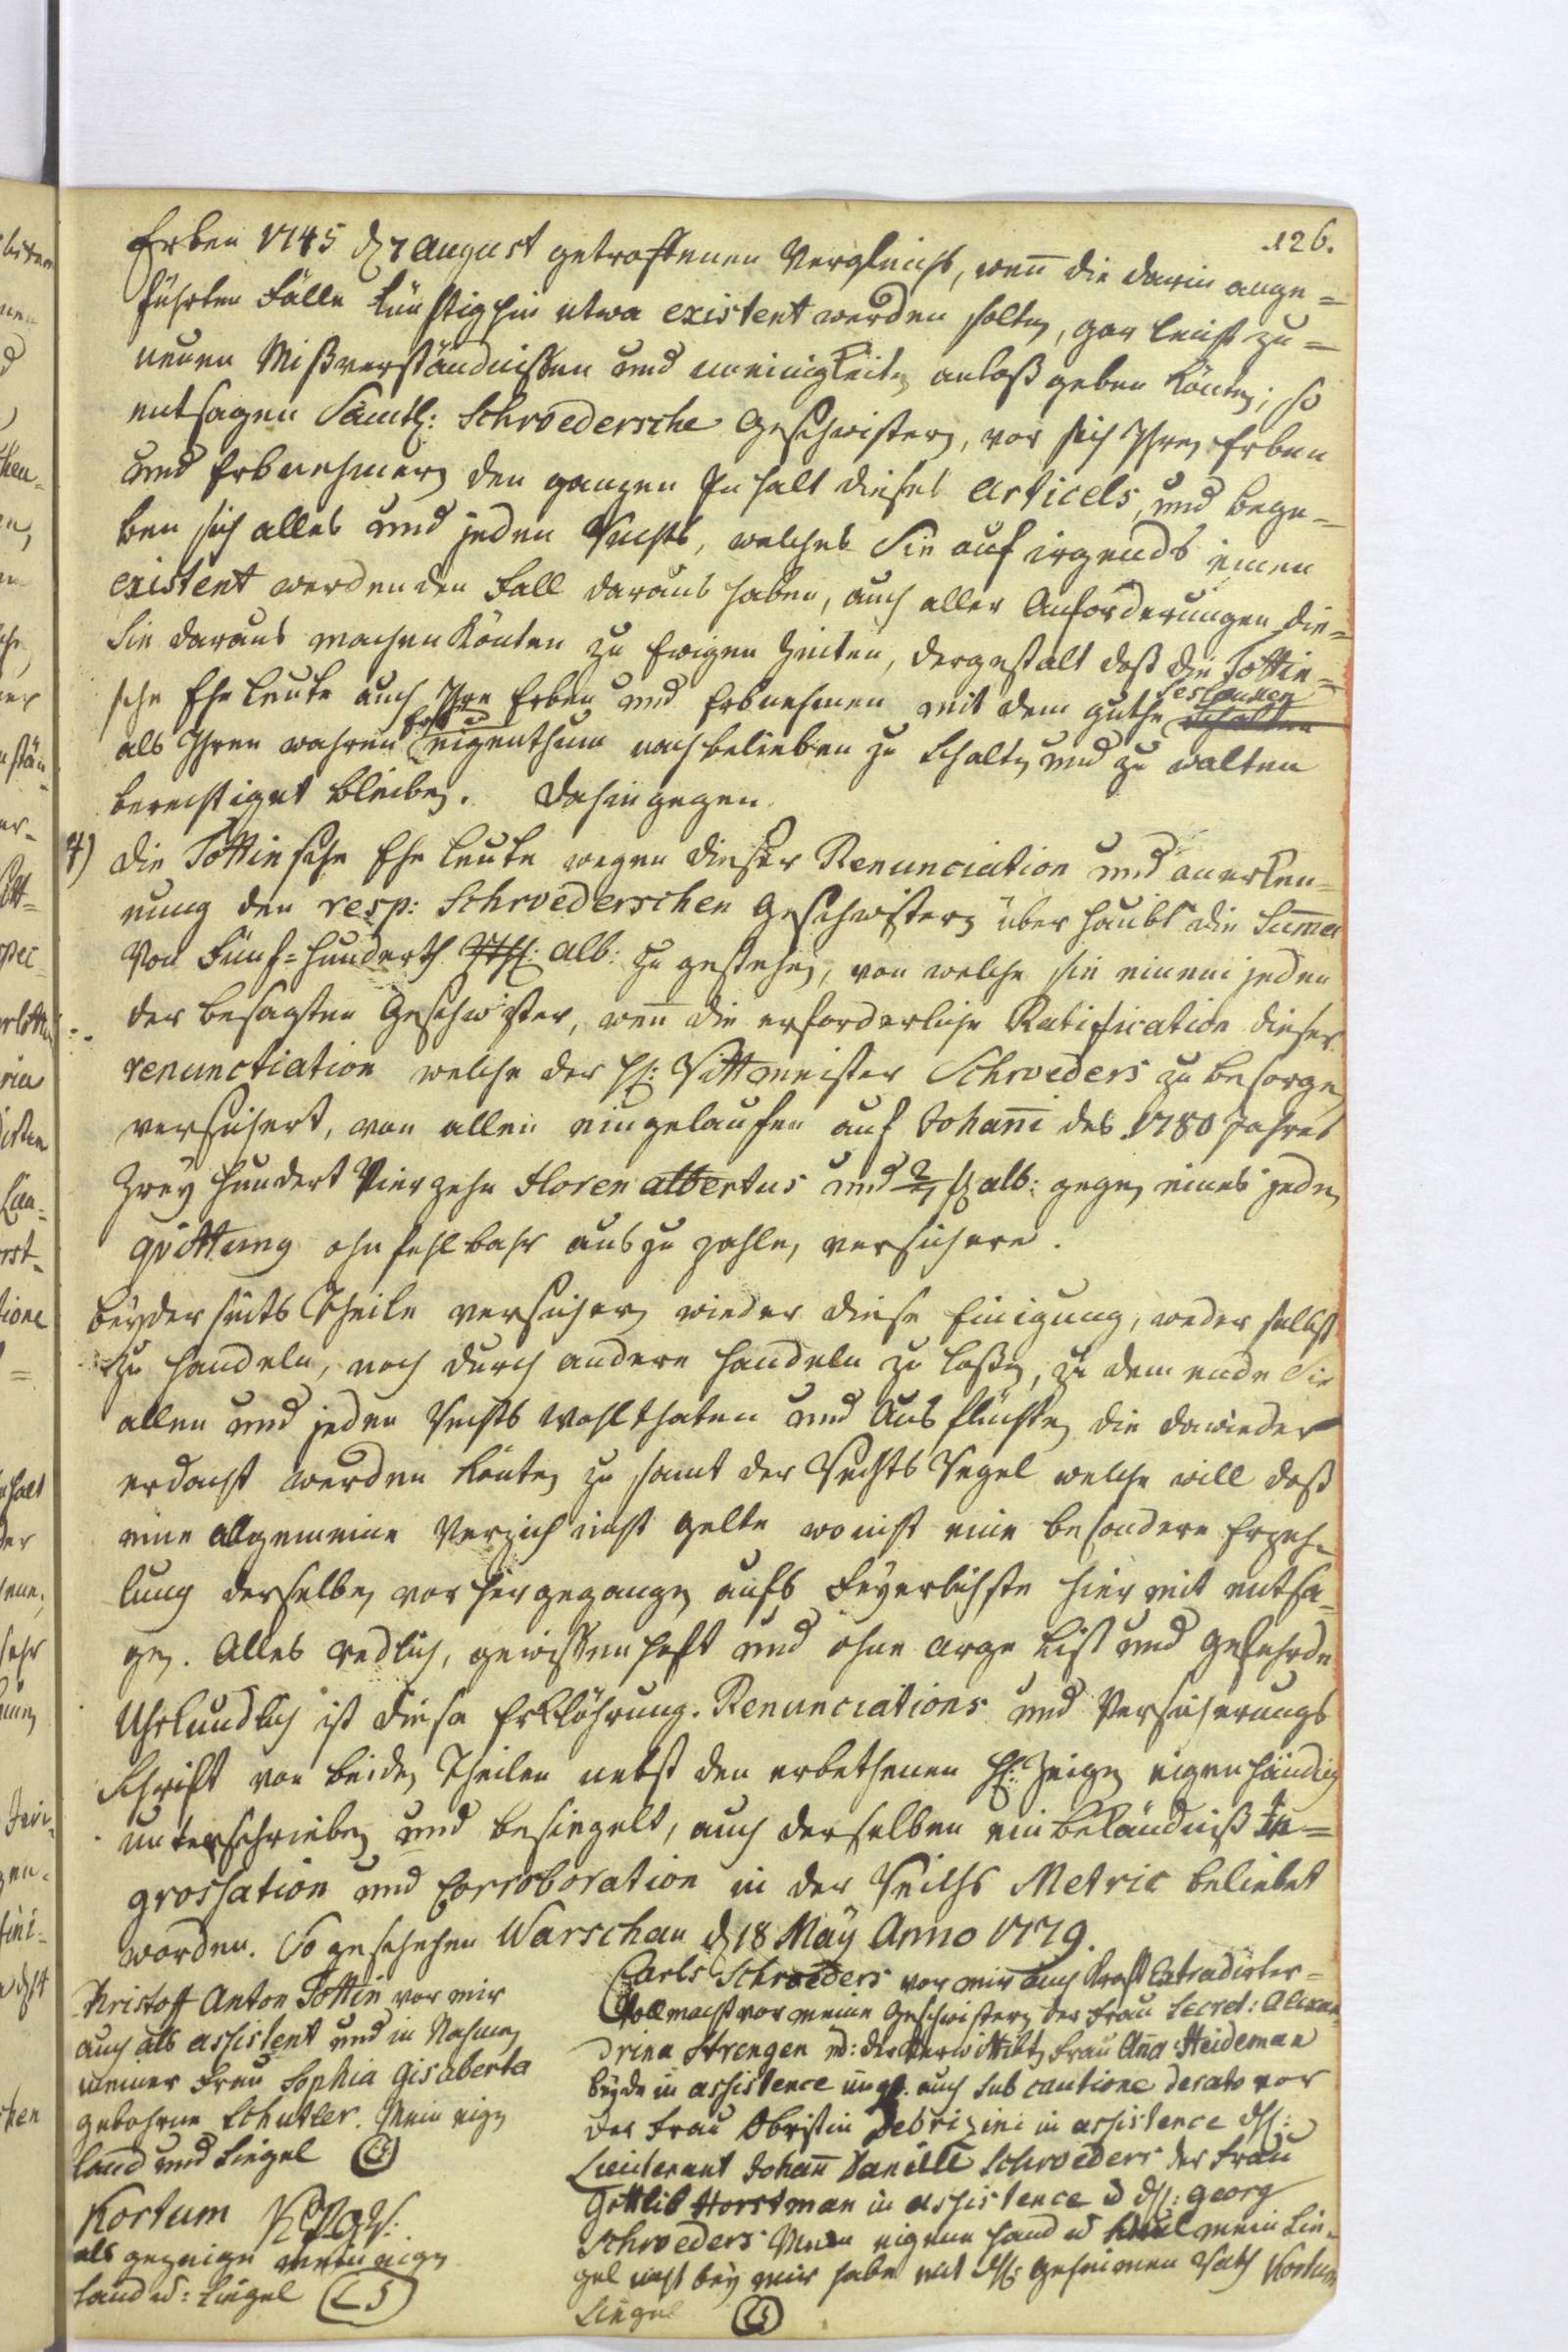 126.
Erben 1745 d 7 August getroffenen Vergleichs, wen̄ die darin ange=
führten Fälle künftighin etwa existent werden solten, gar leicht zu=
neuen Mißverständnißen und uneinigkeiten anlaß geben könten; so
entsagen Sämtl: Schroedersche Geschwistern, vor sich Ihren Erben
und Erbnehmern den ganzen Inhalt dieses Articels, und bege=
ben sich alles und jeden Rechts, welches Sie auf irgends einen
existent werdenden Fall daraus haben, auch aller Anforderungen die=
Sie daraus machen könten zu Ewigen Zeiten, dergestalt daß die Tottin=
sche Eheleute auch Ihre Erben und Erbnehmen mit dem guthe
als Ihren wahren Erb u eigenthum nach belieben zu Schalten und zu walten
berechtiget bleiben. Dahingegen
4) die Tottinsche Eheleute wegen dieser Renunciation und anerken=
nung den resp: Schroederschen Geschwistern überhaubt die Sum̄a
von Fünf=hunderth Rthl: alb: zu gestehen, von welche sie einem jeden
der besagten Geschwister, wen̄ die erforderliche Ratification dieser
renunctiation welche der H: Rittmeister Schroeders zu besorgen
versichert, von allen eingelaufen auf Johan̄i des 1780 Jahres
Zwey hundert Vierzehn Floren albertus und 2/7 fl alb: gegen eines jeden
quittung ohnfehlbahr auszuzahlen, versichern.
beyderseits Theile versichern wieder diese Einigung, weder selbst
zu handeln, noch durch andere handeln zu laßen, zu dem ende Sie
allen und jeden Rechts wohlthaten und Ausflüchten die dawieder
erdacht werden könten zu samt der Rechts Regel welche will daß
eine allgemeine Verzich nicht gelte wo nicht eine besondere Erzeh=
lung derselben vorhergegangen aufs Feyerlichste hiermit entsa=
gen. Alles redlich, gewissenhaft und ohne arge list und Gefehrde
Uhrkundlich ist diese Erklährung. Renunciations und Versicherungs
Schrift von beiden Theilen nebst den erbethenen H: Zeugen eigenhändig
unterschrieben und besiegelt, auch derselben ein beländniß In=
grossation und Corroboration in der Reichs Metric beliebet
worden. So geschehen Warschau d 18 May Anno 1779.
Kristoff Anton Tottin vor mir
auch als assistent und in Nahmen
meiner Frau Sophia Gisaberta
gebohrne Schutler. Mein eigen
hand und Siegel (LS)
Kortum
als gezeige mein eigen
hand u: Siegel (LS)
Carls Schroeders vor mir auch Kraft Extradirter=
Vollmacht vor meine Geschwistern der Frau Secret: Alexan
drina Strengen u: der verwittibten Frau An̄a Heideman
beyde in assistence auch sub cautione de rato vor
der Frau Obristin Debrizini in assistence dH:
Lieutenant Johan̄ Daniell Schroeders der Frau
Gottlib Horstman in assistence u dH: Georg
Schroeders Mein eigene hand u mein Sie=
gel nicht bey mir habe mit dH: geheimen Rath Kortum
Siegel (LS)